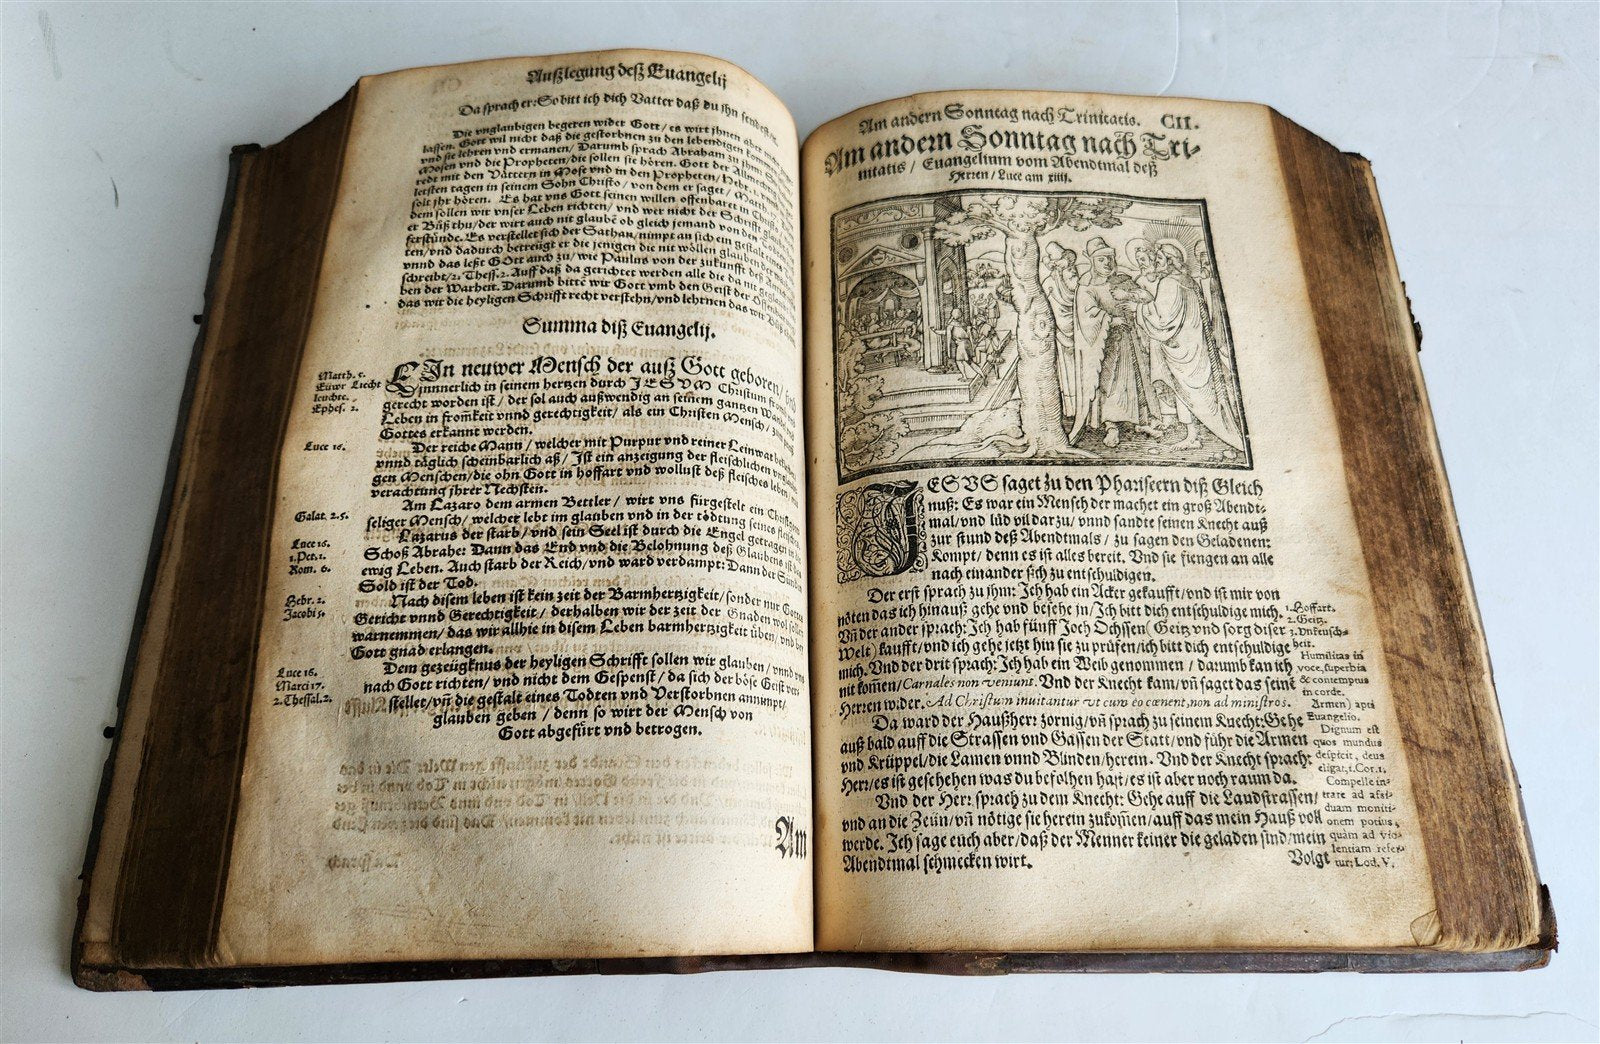 Außlegung deß Euangelij
Da sprach er: So bitt ich dich Vatter daß du jhn sendest
Die vnglaubigen begeren wider Gott / es wirt jhnen aber nicht
lassen. Gott wil nicht daß die gestorbnen zu den lebendigen kommen
vnd sie lehren vnd ermanen / Darumb sprach Abraham zu jhm
Mosen vnd die Propheten / die sollen sie hören. Gott der Allmechtig
redt mit den Vättern in Mose vnd in den Propheten / Hebr. 1.
letsten tagen in seinem Sohn Christo / von dem er saget / Matth.
solt jhr hören. Es hat vns Gott seinen willen offenbaret in Christo
dem sollen wir vnser Leben richten / vnd wer nicht der Schrifft glaubt
er Büß thu / der wirt auch nit glaubē ob gleich jemand von den Todten
ferstünde. Es verstellet sich der Sathan / nimpt an sich ein gestalt
ten / vnd dadurch betreügt er die jenigen die nit wöllen glauben der
vnnd das leßt GOtt auch zu / wie Paulus von der zukunfft deß Antichrists
schreibt / 2. Thess. 2. Auff daß da gerichtet werden alle die da nit geglaubt
ben der Warheit. Darumb bitte wir Gott vmb den Geist der Offenbarung
das wir die heyligen Schrifft recht verstehn / vnd lehrnen das wir
Summa diß Euangelij.
EIn neuwer Mensch der auß Gott geboren / vnd
Matth. 5.
Euwr Liecht
leuchte.
Ephes. 2.
jnnnerlich in seinem hertzen durch JESVM Christum fromm
gerecht worden ist / der sol auch außwendig an seinem gantzen Wandel
Leben in from̃keit vnnd gerechtigkeit / als ein Christen Mensch /
Gottes erkannt werden.
Luce 16.
Der reiche Mann / welcher mit Purpur vnd reiner Leinwat bekleidet
vnnd täglich scheinbarlich aß / Ist ein anzeigung der fleischlichen vnglaubi-
gen Menschen / die ohn Gott in hoffart vnd wollust deß fleisches leben
verachtung jhrer Nechsten.
Am Lazaro dem armen Bettler / wirt vns fürgestelt ein Christgläubiger
Galat. 2.5.
seliger Mensch / welcher lebt im glauben vnd in der tödtung seines fleisches
Luce 16.
1. Pet. 1.
Rom. 6.
Lazarus der starb / vnd sein Seel ist durch die Engel getragen in die
Schoß Abrahe: Dann das End vnd die Belohnung deß Glaubens ist das
ewig Leben. Auch starb der Reich / vnd ward verdampt: Dann der Sünden
Sold ist der Tod.
Hebr. 2.
Jacobi 5.
Nach disem leben ist kein zeit der Barmhertzigkeit / sonder nur Gottes
Gericht vnnd Gerechtigkeit / derhalben wir der zeit der Gnaden wol sollen
warnemmen / das wir allhie in disem Leben barmhertzigkeit üben / vnd bey
Gott gnad erlangen.
Luce 16.
Marci 17.
2. Thessal. 2.
Dem gezeügknus der heyligen Schrifft sollen wir glauben / vnnd vns
nach Gott richten / vnd nicht dem Gespenst / da sich der böse Geist ver-
stellet / vñ die gestalt eines Todten vnd Verstorbnen annimpt /
glauben geben / denn so wirt der Mensch von
Gott abgefürt vnd betrogen.
Am
Am andern Sonntag nach Trinitatis. CII.
Am andern Sonntag nach Tri-
nitatis / Euangelium vom Abendtmal deß
Herren / Luce am xiiij.
JESVS saget zu den Phariseern diß Gleich
nuß: Es war ein Mensch der machet ein groß Abendt-
mal / vnd lüd vil dar zu / vnnd sandte seinen Knecht auß
zur stund deß Abendtmals / zu sagen den Geladenen:
Kompt / denn es ist alles bereit. Vnd sie fiengen an alle
nach einander sich zu entschuldigen.
Der erst sprach zu jhm: Ich hab ein Acker gekaufft / vnd ist mir von
nöten das ich hinauß gehe vnd besehe jn / Ich bitt dich entschuldige mich.
Vñ der ander sprach: Ich hab fünff Joch Ochssen ( Geitz vnd sorg diser
Welt) kaufft / vnd ich gehe jetzt hin sie zu prüfen / ich bitt dich entschuldige
mich. Vnd der drit sprach: Ich hab ein Weib genommen / darumb kan ich
nit kom̃en / Carnales non veniunt. Vnd der Knecht kam / vñ saget das seinē
Herren wider. Ad Christum inuitantur vt cum eo cœnent, non ad ministros.
1. Hoffart.
2. Geitz.
3. Vnkeusch-
heit.
Humilitas in
voce, superbia
& contemptus
in corde.
Armen) apti
Euangelio.
Da ward der Haußherr zornig / vñ sprach zu seinem Knecht: Gehe
auß bald auff die Strassen vnd Gassen der Statt / vnd führ die Armen
vnd Krüppel / die Lamen vnnd Blinden / herein. Vnd der Knecht sprach:
Herr / es ist geschehen was du befolhen hast / es ist aber noch raum da.
Dignum est
quos mundus
despicit, deus
eligat, 1. Cor. 1.
Compelle in-
trare ad assi-
duam moniti-
onem potius,
quàm ad vio-
lentiam refer-
tur: Lod. V.
Vnd der Herr sprach zu dem Knecht: Gehe auff die Landstrassen /
vnd an die Zeün / vñ nötige sie herein zukom̃en / auff das mein Hauß voll
werde. Ich sage euch aber / daß der Menner keiner die geladen sind / mein
Abendtmal schmecken wirt.
Volgt